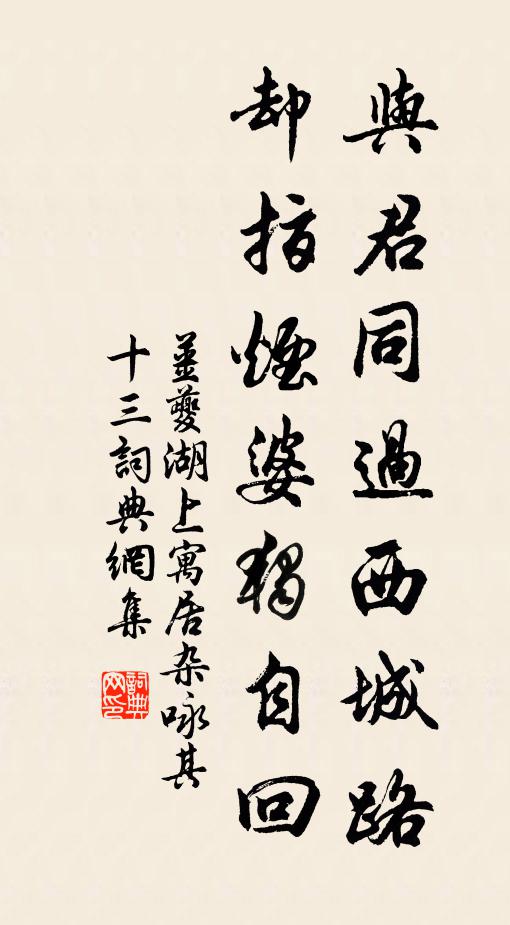 與君同過西城路
却指煙婆獨自回
薑夔湖上寓居杂咏其
十三詞典網集
詞典网印